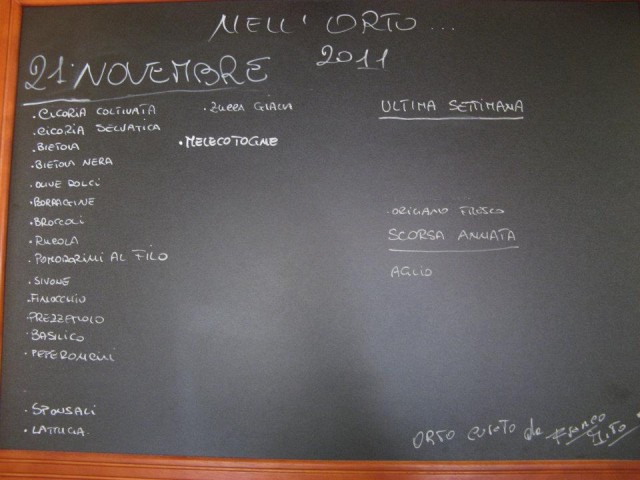 NELL' ORTO ...
2011
21 NOVEMBRE
. CICORIA COLTIVATA
. CICORIA SELVATICA
. BIETOLA
. BIETOLA NERA
. OLIVE DOLCI
. BORRAGINE
. BROCCOLI
. RUCOLA
. POMODORINI AL FILO
. SIVONE
. FINOCCHIO
PREZZEMOLO
. BASILICO
. PEPERONCINI
. SPONSALI
. LATTUGA
. ZUCCA GIALLA
. MELECOTOGNE
ULTIMA SETTIMANA
. ORIGANO FRESCO
SCORSA ANNATA
AGLIO
ORTO CURATO da FRANCO
VITO